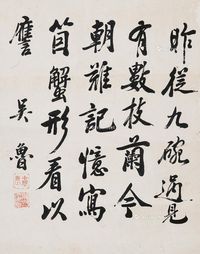 昨從九畹過見
有數枝蘭今
朝難記憶寫
箇蟹形看以
譍 吳魯